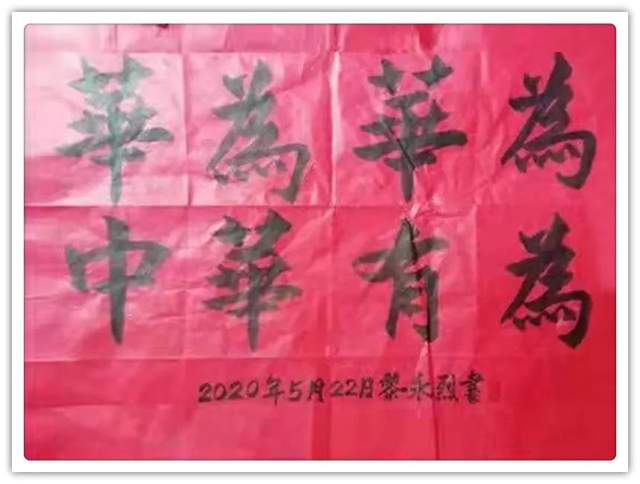 華為華為
中華有為
2020年5月22月黎永烈書